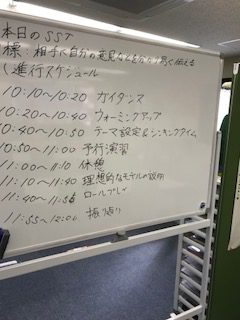 本日のSST
標:相手に自分の意見などを分かり易く伝える
(進行スケジュール
10:10～10:20 ガイダンス
10:20～10:40 ウォーミングアップ
10:40～10:50 テーマ設定&シンキングタイム
10:50～11:00 予行演習
11:00～11:10 休憩
11:10～11:40 理想的なモデルの説明
11:40～11:55 ロールプレイ
11:55～12:00 振り返り